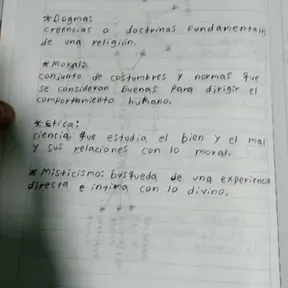 *Dogma:
creencias o doctrinas fundamentales
de una religión.
*Moral:
conjunto de costumbres y normas que
se consideran buenas para dirigir el
comportamiento humano.
*Etica:
ciencia que estudia el bien y el mal
y sus relaciones con lo moral.
*Misticismo: busqueda de una experiencia
directa e intima con lo divino.